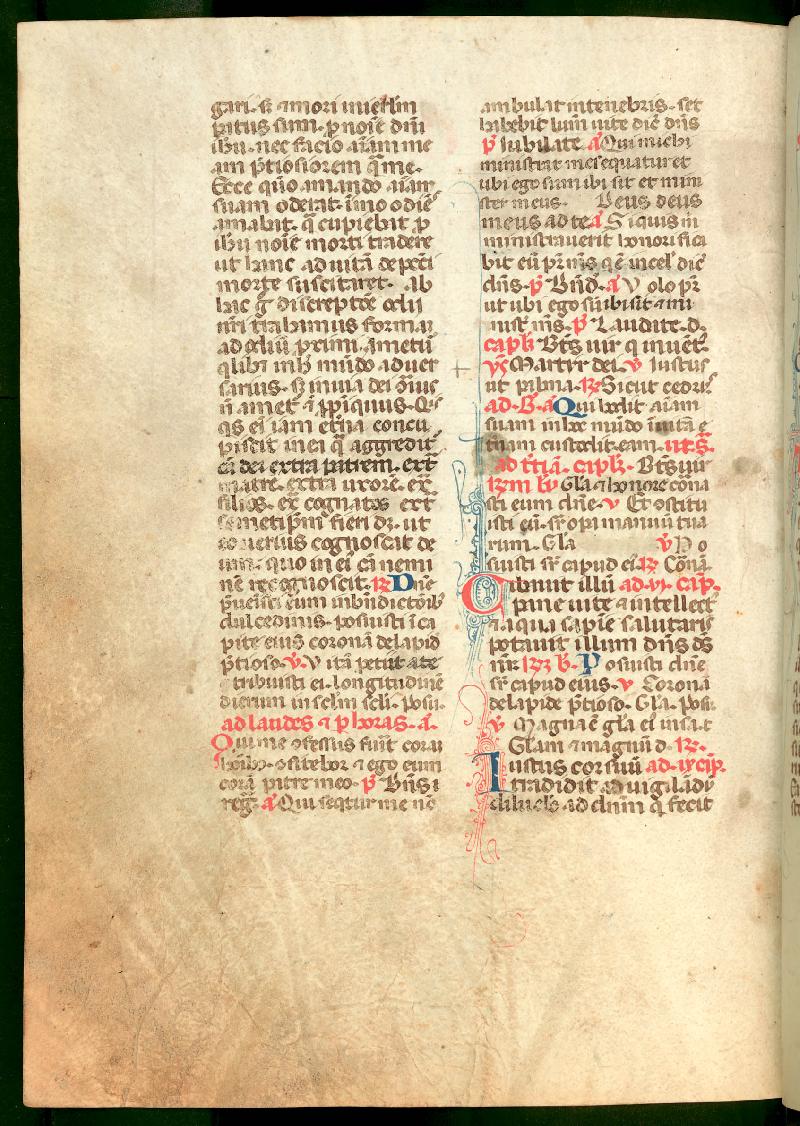 gari. sꝫ ⁊ mori in ierłm
pitus sum. ꝓ noīe dn̄i
ihū. nec facio aīam me
am p̄tiosiorem q̄ me.
Ecce quō amando aīam
suam oderat. īmo odiē
amabat. q̄ cupiebat ꝓ
ihū noīe morti tradere
ut hanc ad uitā de pctī
morte suscitaret. Ab
hac g̊ discreptōe odii
nr̄i trahimus formam
ad odiū primi. ametū
qlibꝫ in hͦ mūdo aduer
sarius. sꝫ in uia dei
n̄ amet ⁊ ꝓpīquus.
q̄s ei iam et̄na concu
piscit in ei q̄ aggredit̄
cā dei extra patrem. ext̄
matrē. extra uxorē. ex̄
filios. ex̄ cognatos ext̄
semetip̄m fieri dꝫ. ut
eo uerius cognoscat de
um. quo in ei cā nemi
nē recognoscit. ℟ Dn̄e
p̄uenisti eum in bn̄dictōibꝫ
dulcedinis. posuisti ī ca
pite eius coronā de lapid
p̄tioso. ℣. Vitā petiit a te
⁊ tribuisti ei. longitudinē
dierum in sclm scli. Posu.
ad laudes ⁊ ꝑ horas. a̅.
Qui me ꝯfessus fuīt corā
hoībꝫ. ꝯfitebor ⁊ ego eum
corā patre meo. p̄ Dn̄s
reg̅. a̅ Qui seqtur me nō
ambulat in tenebris. set
habebit lum̄ uite dic̄ dn̄s
p̄ Iubilate a̅ Qui michi
ministrat me sequatur et
ubi ego sum ibi sit et mini
ster meus. Deus deus
meus ad te a̅ Si quis m̄
ministrauerit honorifica
bit eū pr̄ mꝰs q̄ ē in cel̄ dic̄
dn̄s. p̄ Bn̄d̄. a̅ Volo pr̄
ut ubi ego sū ibi sit ⁊ mi
nistr̄ mꝰs. p̄ Laudite. d.
capl̄ Bt̄s uir q inuēt̄.
ym̄ Martyr dei. ℣ Iustus
ut palma. ℟ Sicut cedrus
ad. B. a̅ Qui hodit aīam
suam in hoc mūdo ī uitā e
t̄nam custodit eam. ut. S̄.
ad tt̄iā. capl̄. Bt̄s uir
℟m bͬ Gl̄a ⁊ honore cōna
sti eum dn̄e. ℣ Et ꝯstitu
isti eū. sr̄ opa manuū tua
rum. Gl̄a ℣ Po
suisti sr̄ capud ei. ℟ Cōnā.
Cibauit illū ad. vi. cap̄.
pane uite ⁊ intellect̄
⁊ aqua sapīe salutaris
potauit illum dn̄s ds̄
nr̄. ℟ bͬ. Posuisti dn̄e
sr̄ capud eius. ℣ Coronā
de lapide p̄tioso. Gl̄a. Posu.
℣ Magna ē gl̄a ei in sa.t
Gl̄am ⁊ magnū d. ℟.
Iustus cor suū ad. ix cap̄.
tradidit ad uigilādū
diluclo ad dnm̄ q fecit